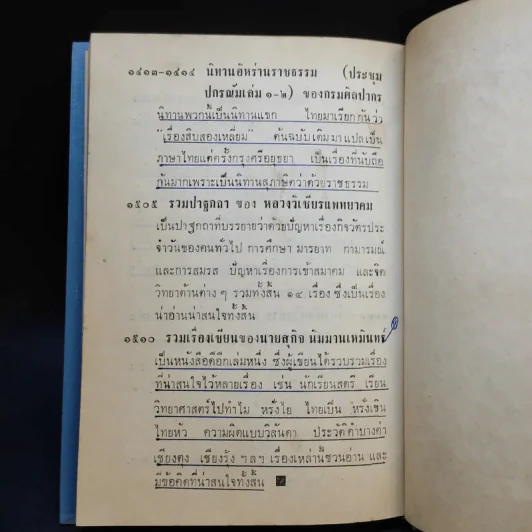 ๑๔๑๓-๑๔๑๔ นิทานอิหร่านราชธรรม (ประชุม
ปกรณัมเล่ม ๑-๒) ของกรมศิลปากร
นิทานพวกนี้เป็นนิทานแขก ไทยมาเรียกกันว่า
"เรื่องสิบสองเหลี่ยม" ต้นฉบับเดิมมาแปลเป็น
ภาษาไทยแต่ครั้งกรุงศรีอยุธยา เป็นเรื่องที่นับถือ
กันมากเพราะเป็นนิทานสุภาษิตว่าด้วยราชธรรม
๑๕๐๕ รวมปาฐกถา ของ หลวงวิเชียรแพทยาคม
เป็นปาฐกถาที่บรรยายว่าด้วยปัญหาเรื่องกิจวัตรประ
จำวันของคนทั่วไป การศึกษา มารยาท กามารมณ์
และการสมรส ปัญหาเรื่องการเข้าสมาคม และจิต
วิทยาด้านต่าง ๆ รวมทั้งสิ้น ๑๔ เรื่อง ซึ่งเป็นเรื่อง
น่าอ่านน่าสนใจทั้งสิ้น
๑๕๑๐ รวมเรื่องเขียนของนายสุกิจ นิมมานเหมินทร์
เป็นหนังสือดีอีกเล่มหนึ่ง ซึ่งผู้เขียนได้รวบรวมเรื่อง
ที่น่าสนใจไว้หลายเรื่อง เช่น นักเรียนสตรี เรียน
วิทยาศาสตร์ไปทำไม หรั่งไย ไทยเป็น หรั่งเขิน
ไทยหัว ความผิดแบบวิลันดา ประวัติคำบางคำ
เชียงตุง เชียงรุ้ง ฯลฯ เรื่องเหล่านี้ชวนอ่าน และ
มีข้อคิดที่น่าสนใจทั้งสิ้น